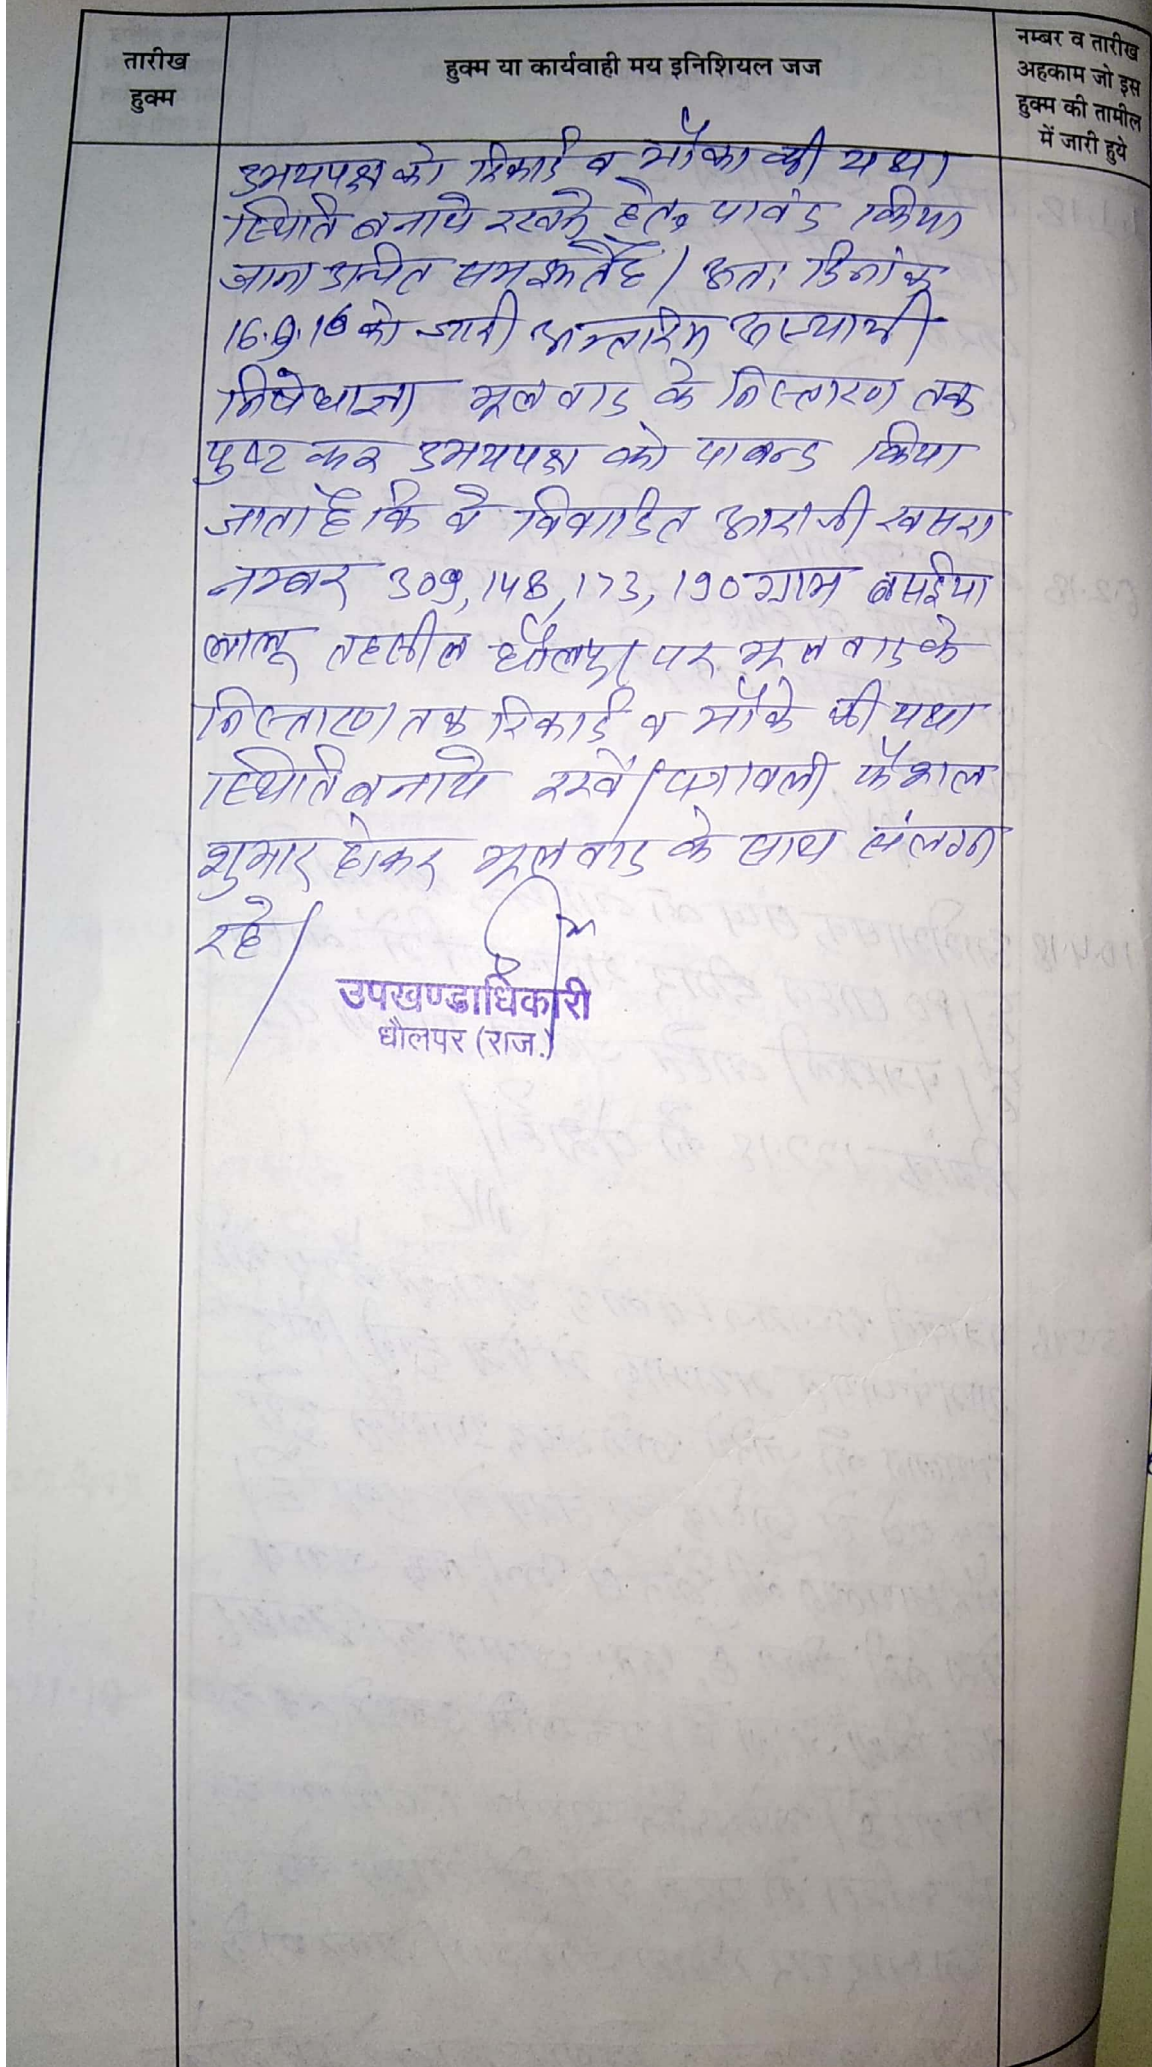 तारीख
हुक्म
हुक्म या कार्यवाही मय इनिशियल जज
नम्बर व तारीख
अहकाम जो इस
हुक्म की तामील
में जारी हुये
उभयपक्ष को रिकार्ड व मौका की यथा
स्थिति बनाये रखने हेतु पाबंद किया
जाना उचित समझते है। अतः दिनांक
16.9.16 को जारी अन्तरिम अस्थायी
निषेधाज्ञा मूलवाद के निस्तारण तक
पुष्ट कर उभयपक्ष को पाबन्द किया
जाता है कि वे विवादित आराजी खसरा
नम्बर 309, 148, 173, 190 ग्राम बसईया
लालू तहसील धौलपुर पर मूलवाद के
निस्तारण तक रिकार्ड व मौके की यथा
स्थिति बनाये रखें। पत्रावली फैशल
शुमार होकर मूलवाद के साथ संलग्न
रहे।
उपखण्डाधिकारी
धौलपर (राज.)